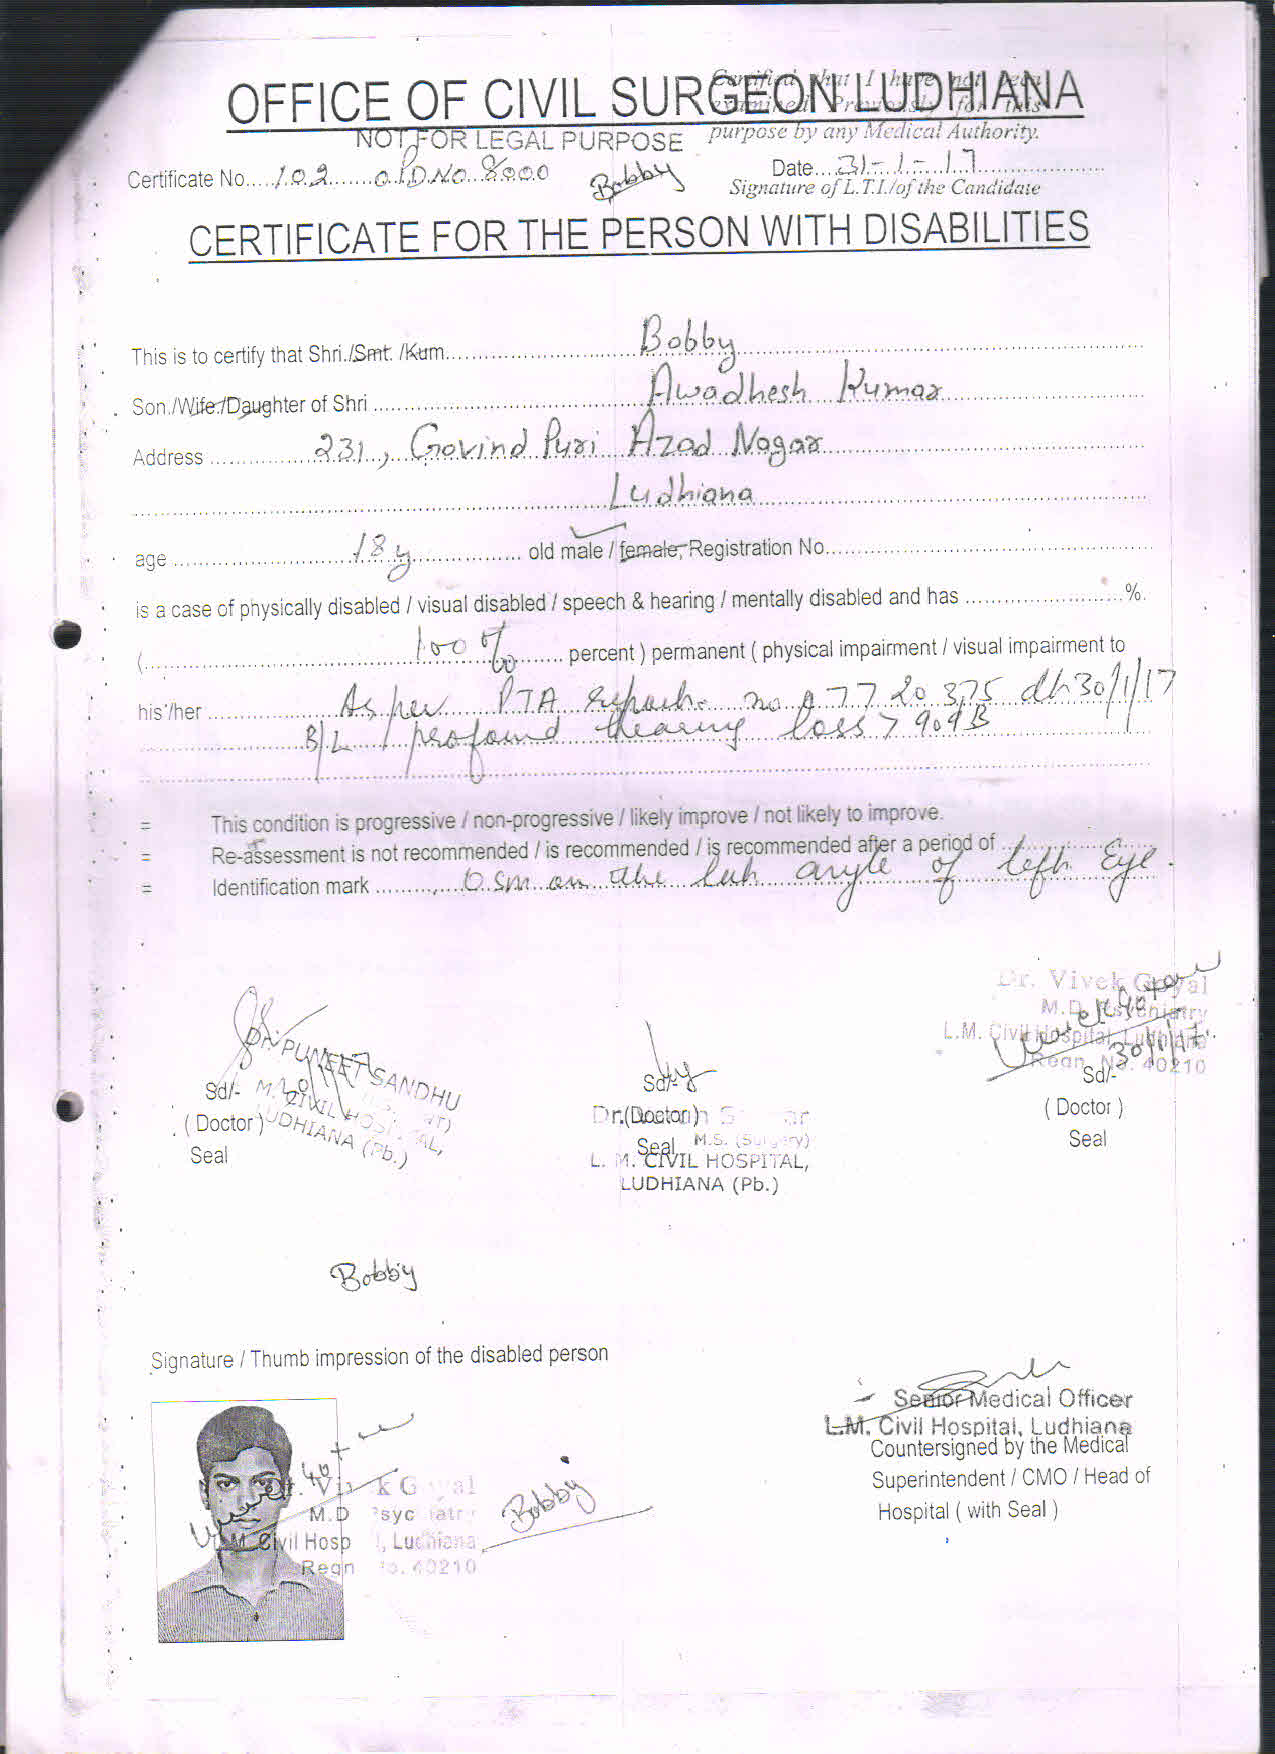 Certified that I have not been
OFFICE OF CIVIL SURGEON LUDHIANA
examined Previously for this
NOT FOR LEGAL PURPOSE purpose by any Medical Authority.
Certificate No.....102........OPD.NO.8000 Bobby Date....31-1-17....................
Signature of L.T.I./of the Candidate
CERTIFICATE FOR THE PERSON WITH DISABILITIES
This is to certify that Shri./Smt. /Kum............Bobby............
Son./Wife./Daughter of Shri ............Awadhesh Kumar............
Address ............231, Govind Puri Azad Nagar............
............Ludhiana............
age ............18 y............ old male / female, Registration No............
is a case of physically disabled / visual disabled / speech & hearing / mentally disabled and has ............%.
(............100 %............ percent ) permanent ( physical impairment / visual impairment to
his'/her ............As per PTA report no 30/1/17
B/L profound hearing loss > 90dB
= This condition is progressive / non-progressive / likely improve / not likely to improve.
= Re-assessment is not recommended / is recommended / is recommended after a period of ............
= Identification mark ............ on the angle of left Eye.
Dr. Vivek Goyal
M.D. Psychiatry
L.M. Civil Hospital, Ludhiana
Regn. No. 40210
30/1/17
Dr. PUNEET SANDHU
CIVIL HOSPITAL,
LUDHIANA (Pb.)
Sd/- Sd/- Sd/-
( Doctor ) Dr. (Doctor) ( Doctor )
Seal Seal M.S. (Surgery) Seal
L. M. CIVIL HOSPITAL,
LUDHIANA (Pb.)
Bobby
Signature / Thumb impression of the disabled person
Senior Medical Officer
L.M. Civil Hospital, Ludhiana
Countersigned by the Medical
Superintendent / CMO / Head of
Hospital ( with Seal )
Dr. Vivek Goyal
M.D. Psychiatry
L.M. Civil Hospital, Ludhiana
Regn No. 40210
Bobby